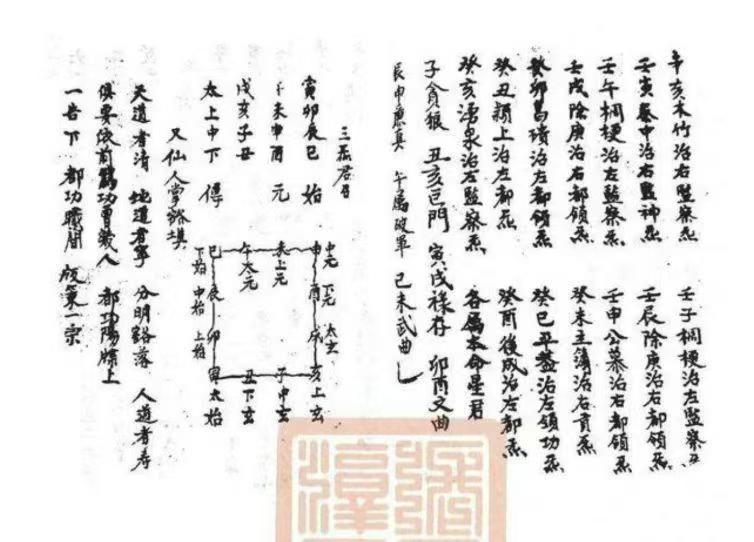 辛亥本竹治右監察炁
壬子榈梗治左監察炁
壬寅秦中治右監神炁
壬辰除庚治右都領炁
壬午榈梗治左監察炁
壬申公慕治右都領炁
壬戌除庚治右都領炁
癸未主簿治右貢炁
癸卯葛璝治左都領炁
癸巳平蓋治左領功炁
癸丑頴上治左都炁
癸酉後成治左都炁
癸亥湧泉治左監察炁
各屬本命星君
子貪狼 丑亥巨門 寅戌祿存 卯酉文曲
辰申亷真 午屬破軍 巳未武曲
三炁君召
寅卯辰巳 始
午未申酉 元
戌亥子丑
太上中下 傳
又仙人掌
中元 下元 太玄
申 酉 戌 亥上玄
未上元
子中玄
午太元
丑下玄
巳 辰 卯 寅太始
下始 中始 上始
天道者清 地道者寧 分明豁落 人道者寿
俱要依前 功曹幾人 都功陽牒上
一吉下 都功職閒 版第一宗